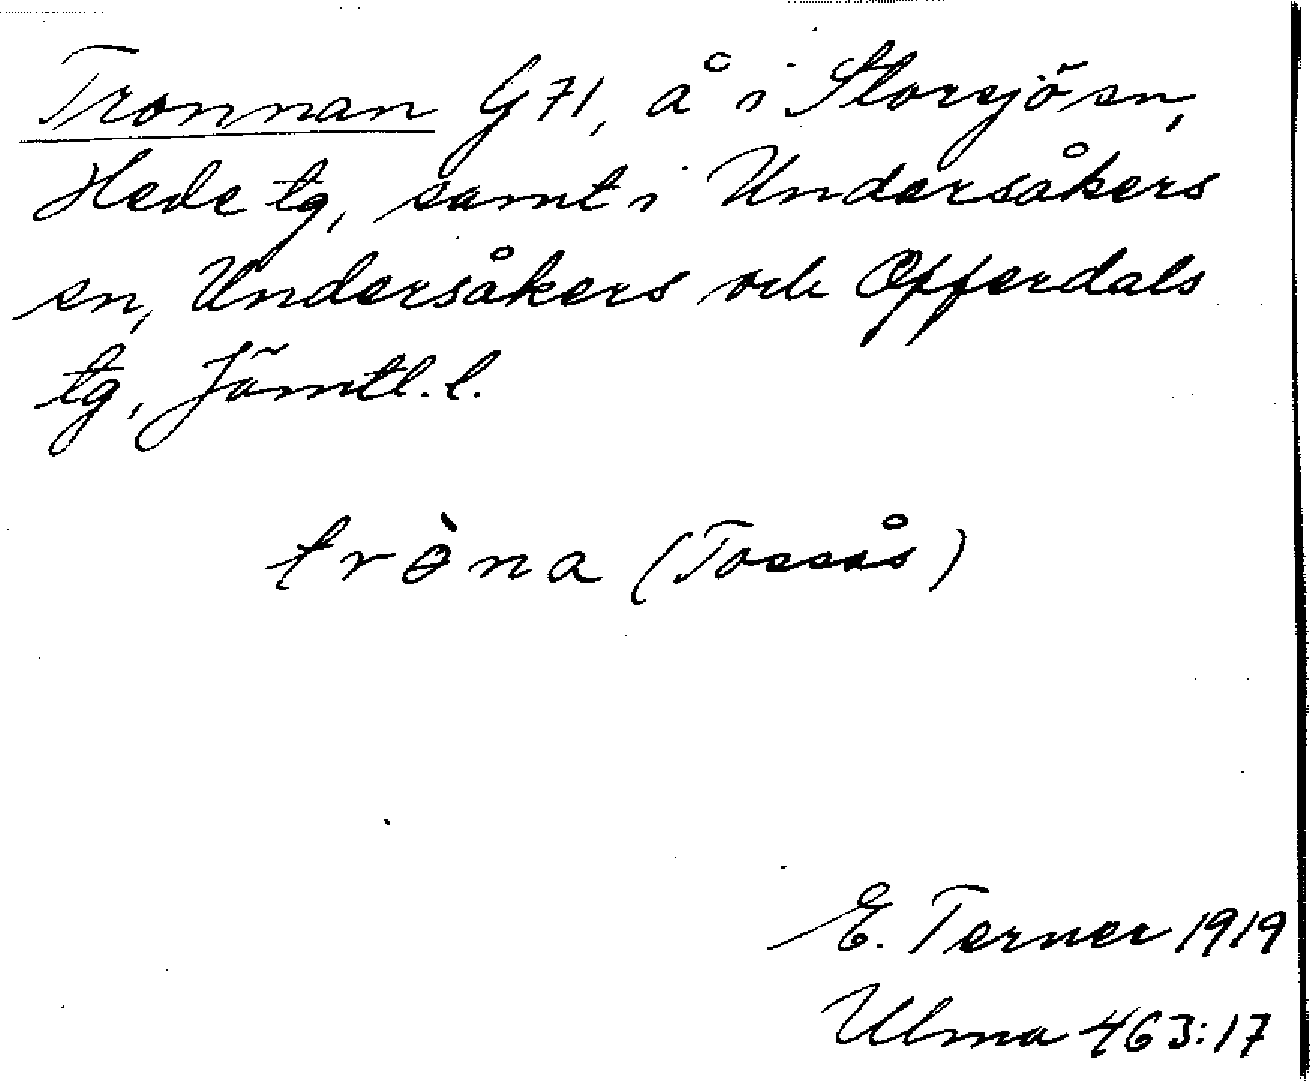 Tronnan G 71, å i Storsjö sn,
Hede tg, samt i Undersåkers
sn, Undersåkers och Offerdals
tg, Jämtl. l.
tròna (Tossås)
E. Terner 1919
Ulma 463:17